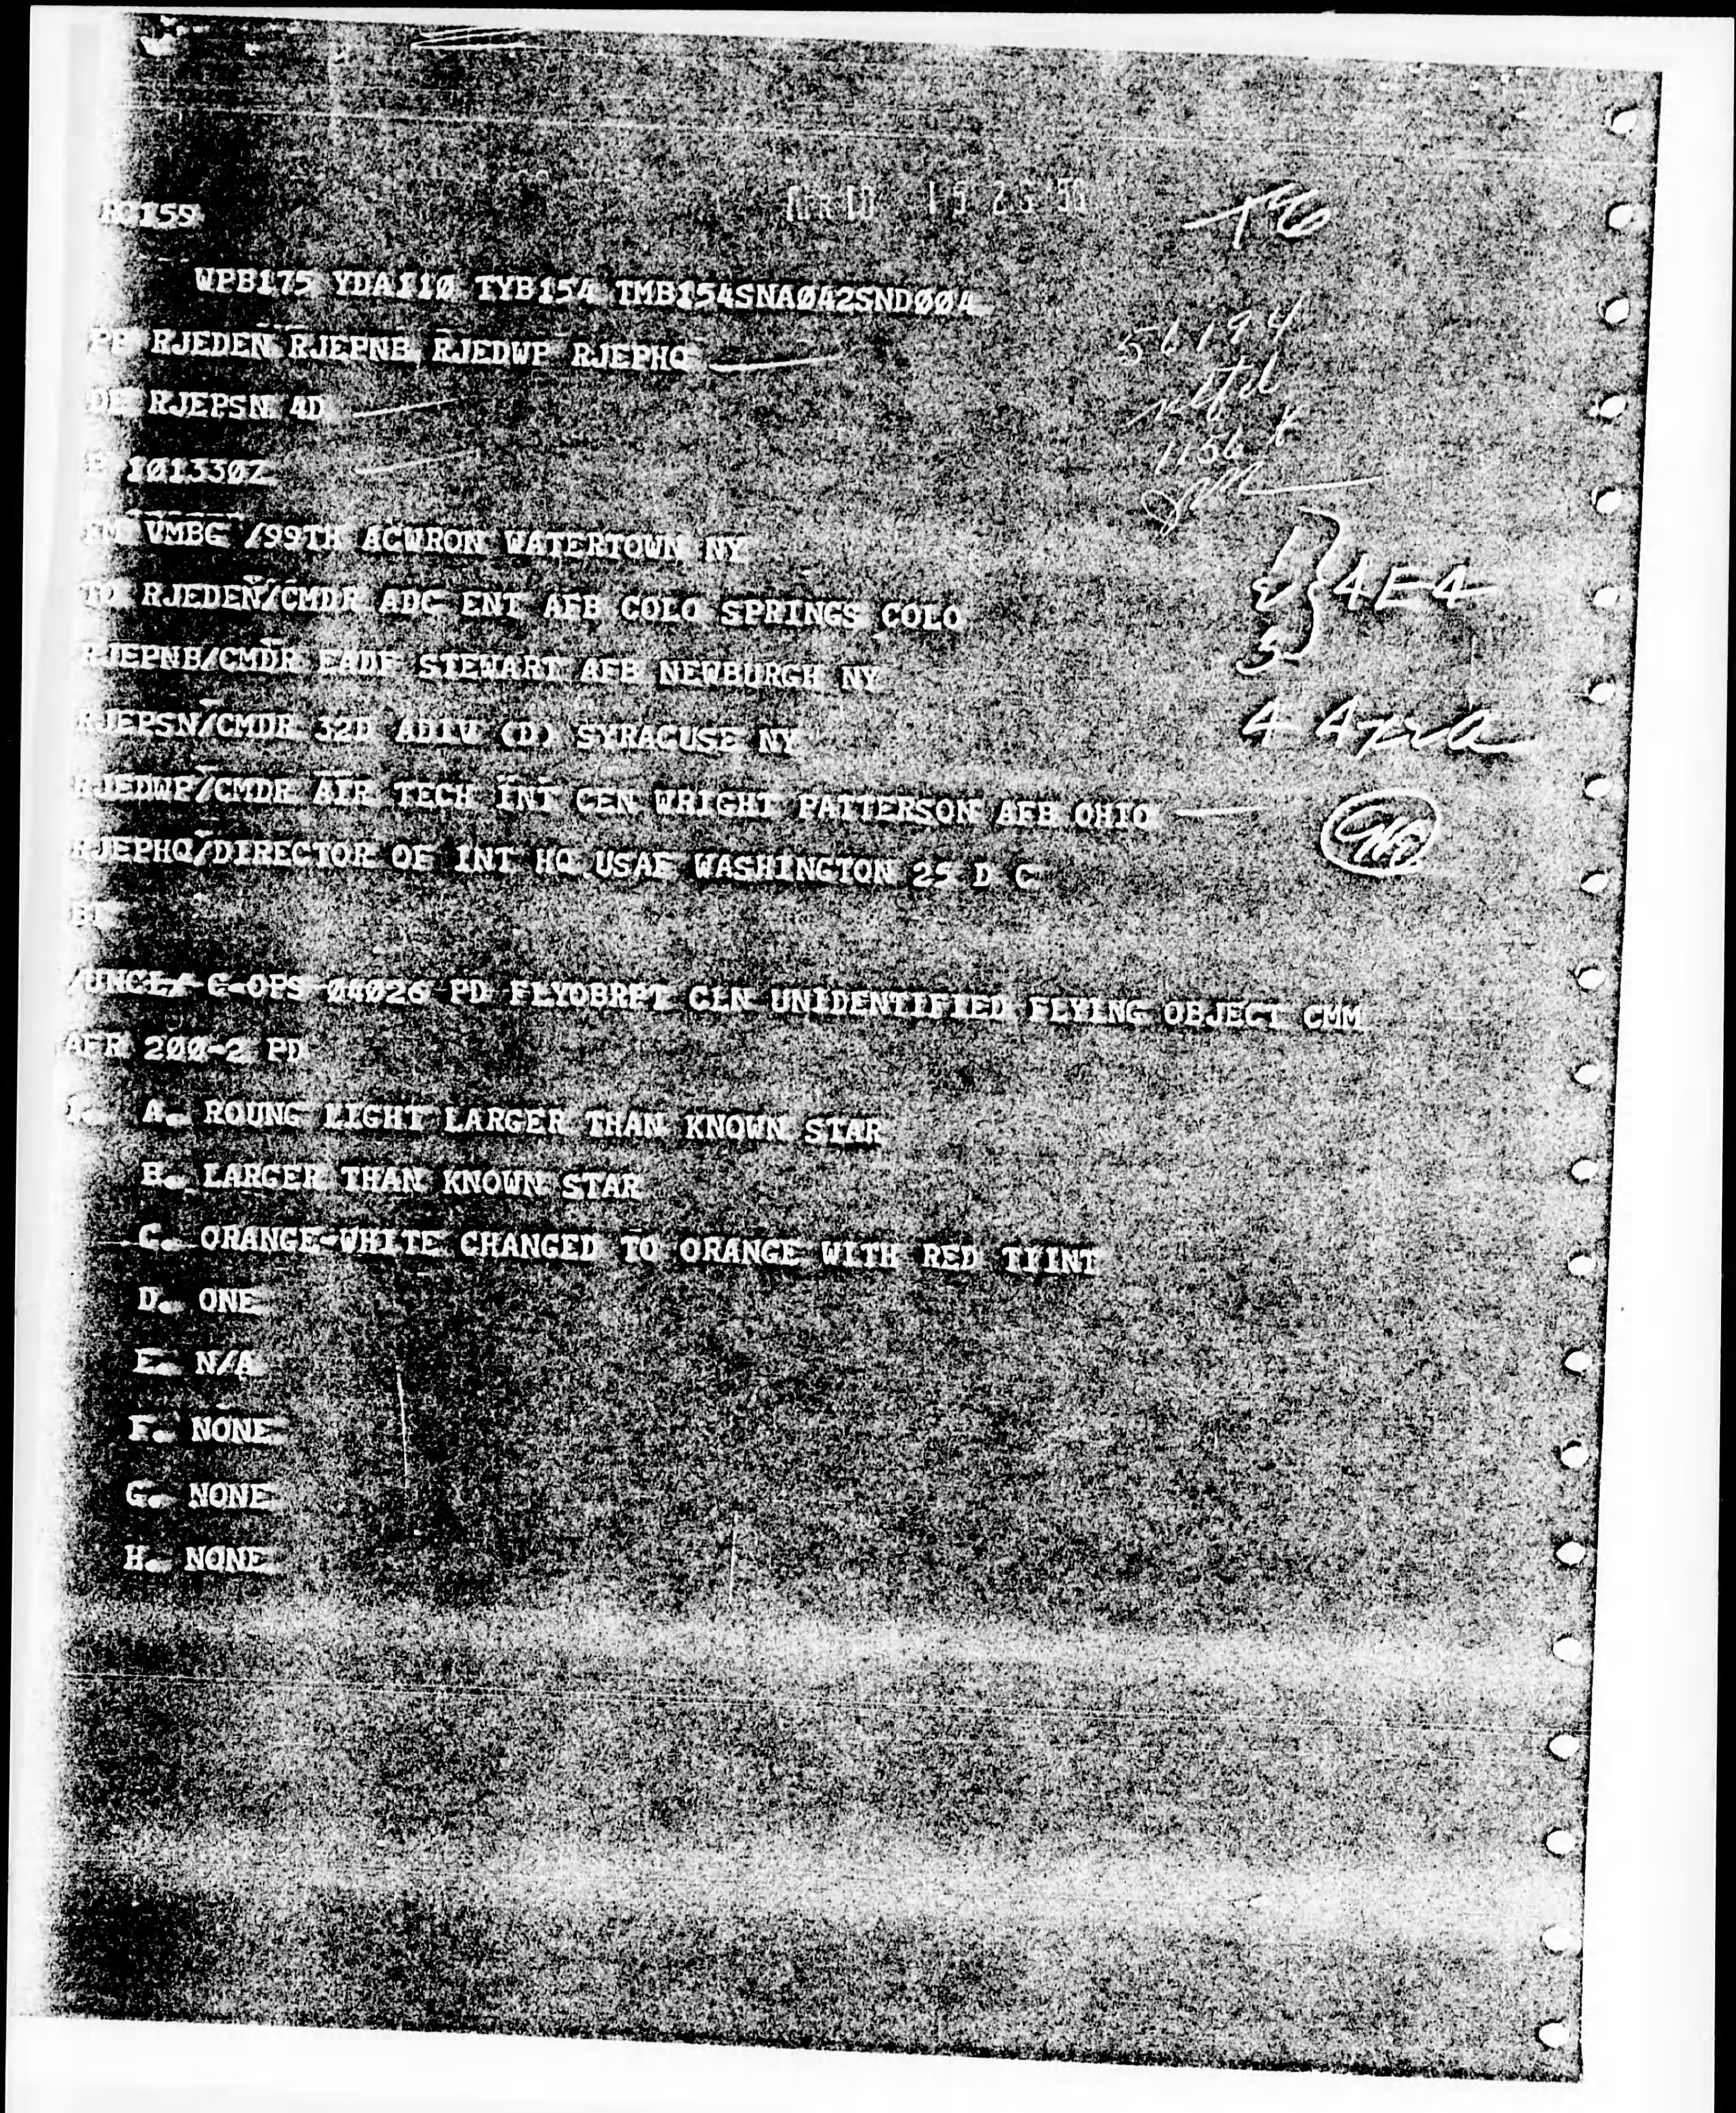 APR 10 15 26 '56
RC159
T6
WPB175 YDA110 TYB154 TMB154SNA042SND004
PP RJEDEN RJEPNB RJEDWP RJEPHQ
56194
DE RJEPSN 4D
1156
P 101330Z
FM VMBG /99TH ACWRON WATERTOWN NY
TO RJEDEN/CMDR ADC ENT AFB COLO SPRINGS COLO
4E4
RJEPNB/CMDR EADF STEWART AFB NEWBURGH NY
RJEPSN/CMDR 32D ADIV (D) SYRACUSE NY
4
RJEDWP/CMDR AIR TECH INT CEN WRIGHT PATTERSON AFB OHIO
RJEPHQ/DIRECTOR OF INT HQ USAF WASHINGTON 25 D C
BT
/UNCL/ C-OPS 04026 PD FLYOBRPT CLN UNIDENTIFIED FLYING OBJECT CMM
AFR 200-2 PD
1. A. ROUNG LIGHT LARGER THAN KNOWN STAR
B. LARGER THAN KNOWN STAR
C. ORANGE-WHITE CHANGED TO ORANGE WITH RED TIINT
D. ONE
E. N/A
F. NONE
G. NONE
H. NONE